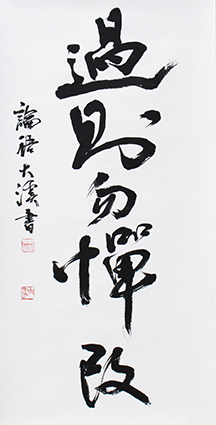 過則勿憚改
論語 大溪書